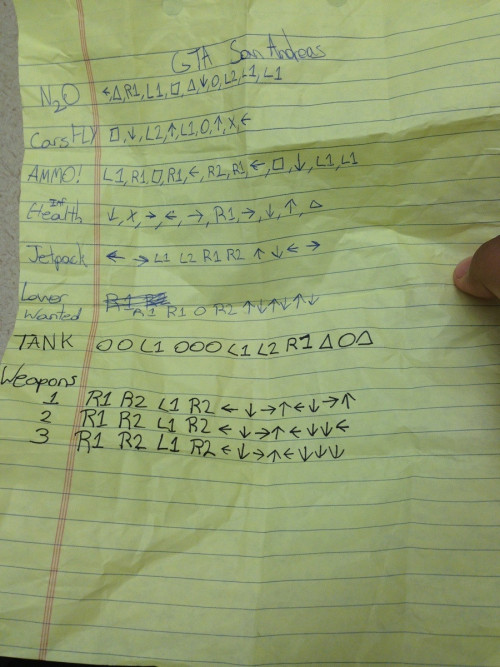 GTA San Andreas
N2O ←,△,R1,L1,□,△,↓,O,L2,L1,L1
Cars FLY □,↓,L2,↑,L1,O,↑,X,←
AMMO! L1,R1,□,R1,←,R2,R1,←,□,↓,L1,L1
Inf Health ↓,X,→,←,→,R1,→,↓,↑,△
Jetpack ← → L1 L2 R1 R2 ↑ ↓ ← →
Lower
Wanted R1 R1 O R2 ↑↓↑↓↑↓
TANK O O L1 O O O L1 L2 R1 △ O △
Weapons
1 R1 R2 L1 R2 ← ↓ → ↑ ← ↓ → ↑
2 R1 R2 L1 R2 ← ↓ → ↑ ← ↓ ↓ ←
3 R1 R2 L1 R2 ← ↓ → ↑ ← ↓ ↓ ↓